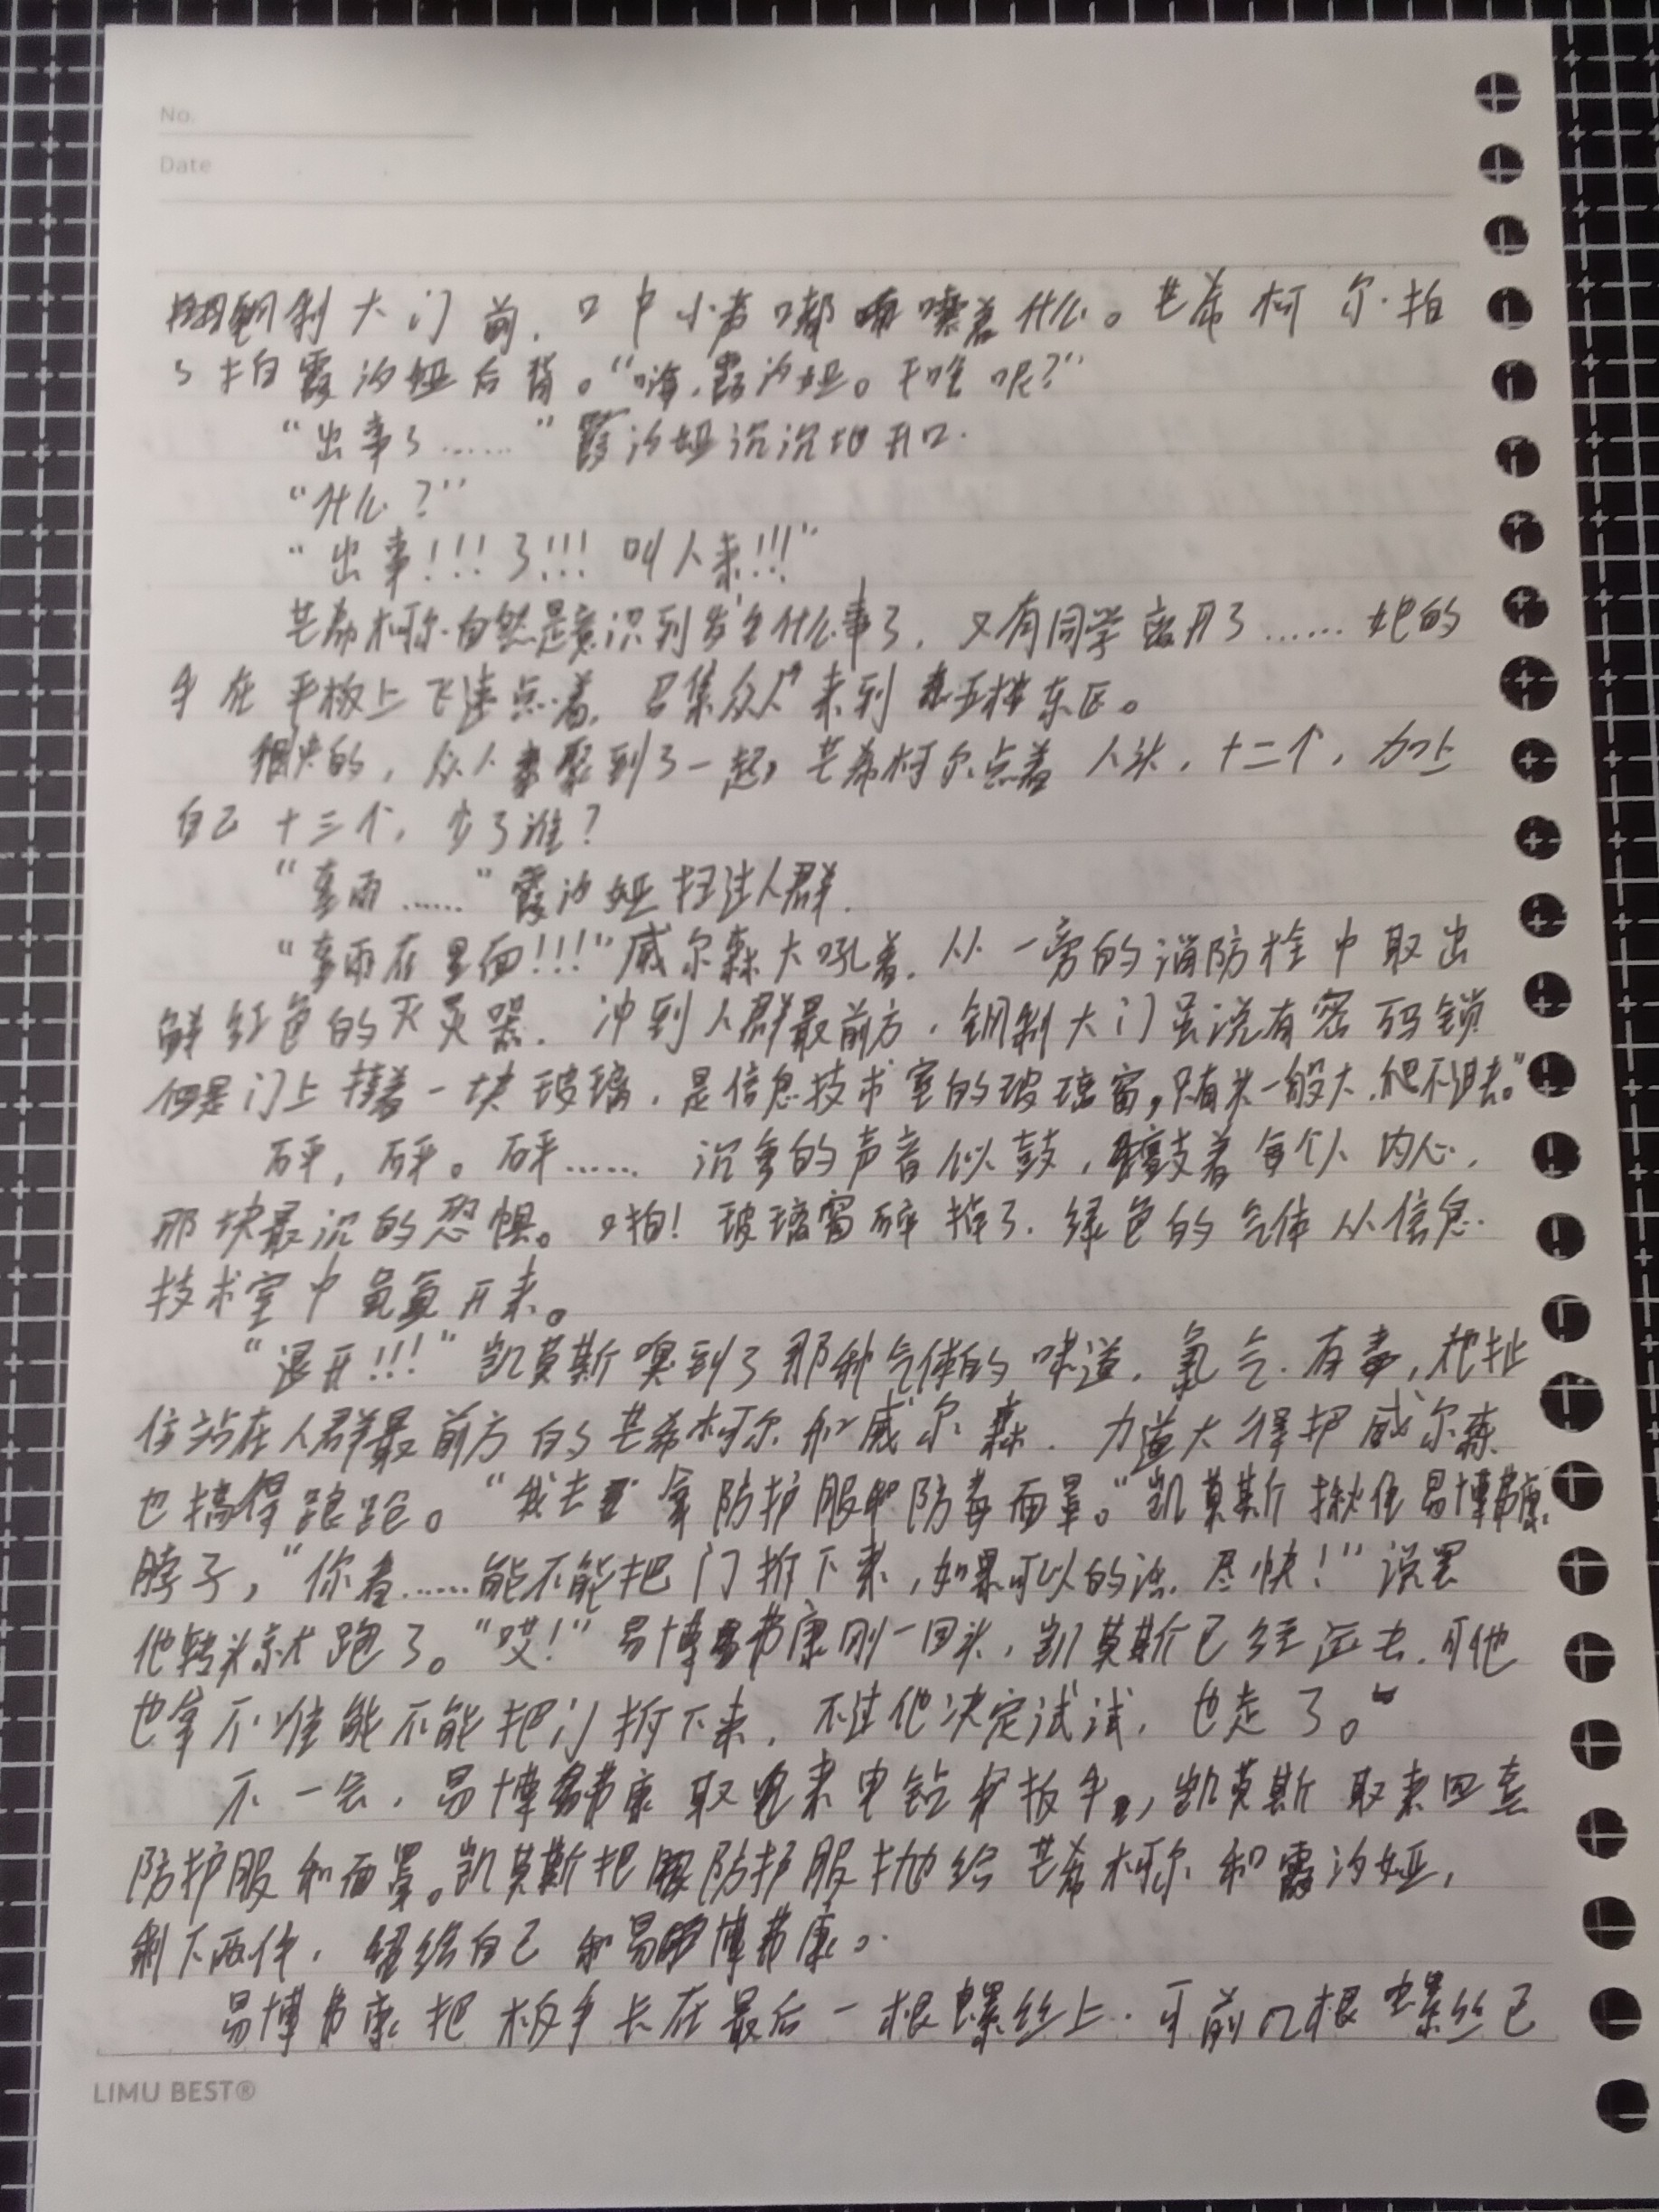 No.
Date
钢制大门前，口中小声嘟囔着什么。芒希柯尔拍
了拍露汐娅后背。“嗨，露汐娅。干啥呢？”
“出事了……”露汐娅沉沉地开口.
“什么？”
“出事！！！了！！！叫人来！！！”
芒希柯尔自然是意识到发生什么事了，又有同学离开了……她的
手在平板上飞速点着，召集众人来到 东区。
很快的，众人聚到了一起，芒希柯尔点着人头，十二个，加上
自己十三个，少了谁？
“ 雨……”露汐娅扫过人群.
“ 雨在里面！！！”威尔森大吼着，从一旁的消防栓中取出
鲜红色的灭火器，冲到人群最前方，钢制大门虽说有密码锁
但是门上 着一块玻璃，是信息技术室的玻璃窗，只有头一般大，爬不进去。”
砰，砰。砰……沉重的声音似鼓， 着每个人内心，
那块最沉的恐惧。啪！玻璃窗碎掉了，绿色的气体从信息
技术室中 开来。
“退开！！！”凯莫斯嗅到了那种气体的味道，氯气.有毒，他扯
住站在人群最前方的芒希柯尔和威尔森，力道大得把威尔森
也搞得踉跄。“我去拿防护服和防毒面罩。”凯莫斯揪住易博弗康
脖子，“你看……能不能把门拆下来，如果可以的话，尽快！”说罢
他转头就跑了。“哎！”易博弗康刚一回头，凯莫斯已经远去，可他
也拿不准能不能把门拆下来，不过他决定试试，也走了。
不一会，易博弗康取来电钻和扳手，凯莫斯取来四套
防护服和面罩。凯莫斯把防护服抛给芒希柯尔和露汐娅，
剩下两件，留给自己和易博弗康。
易博弗康把板手卡在最后一根螺丝上.可前几根螺丝已
LIMU BEST®